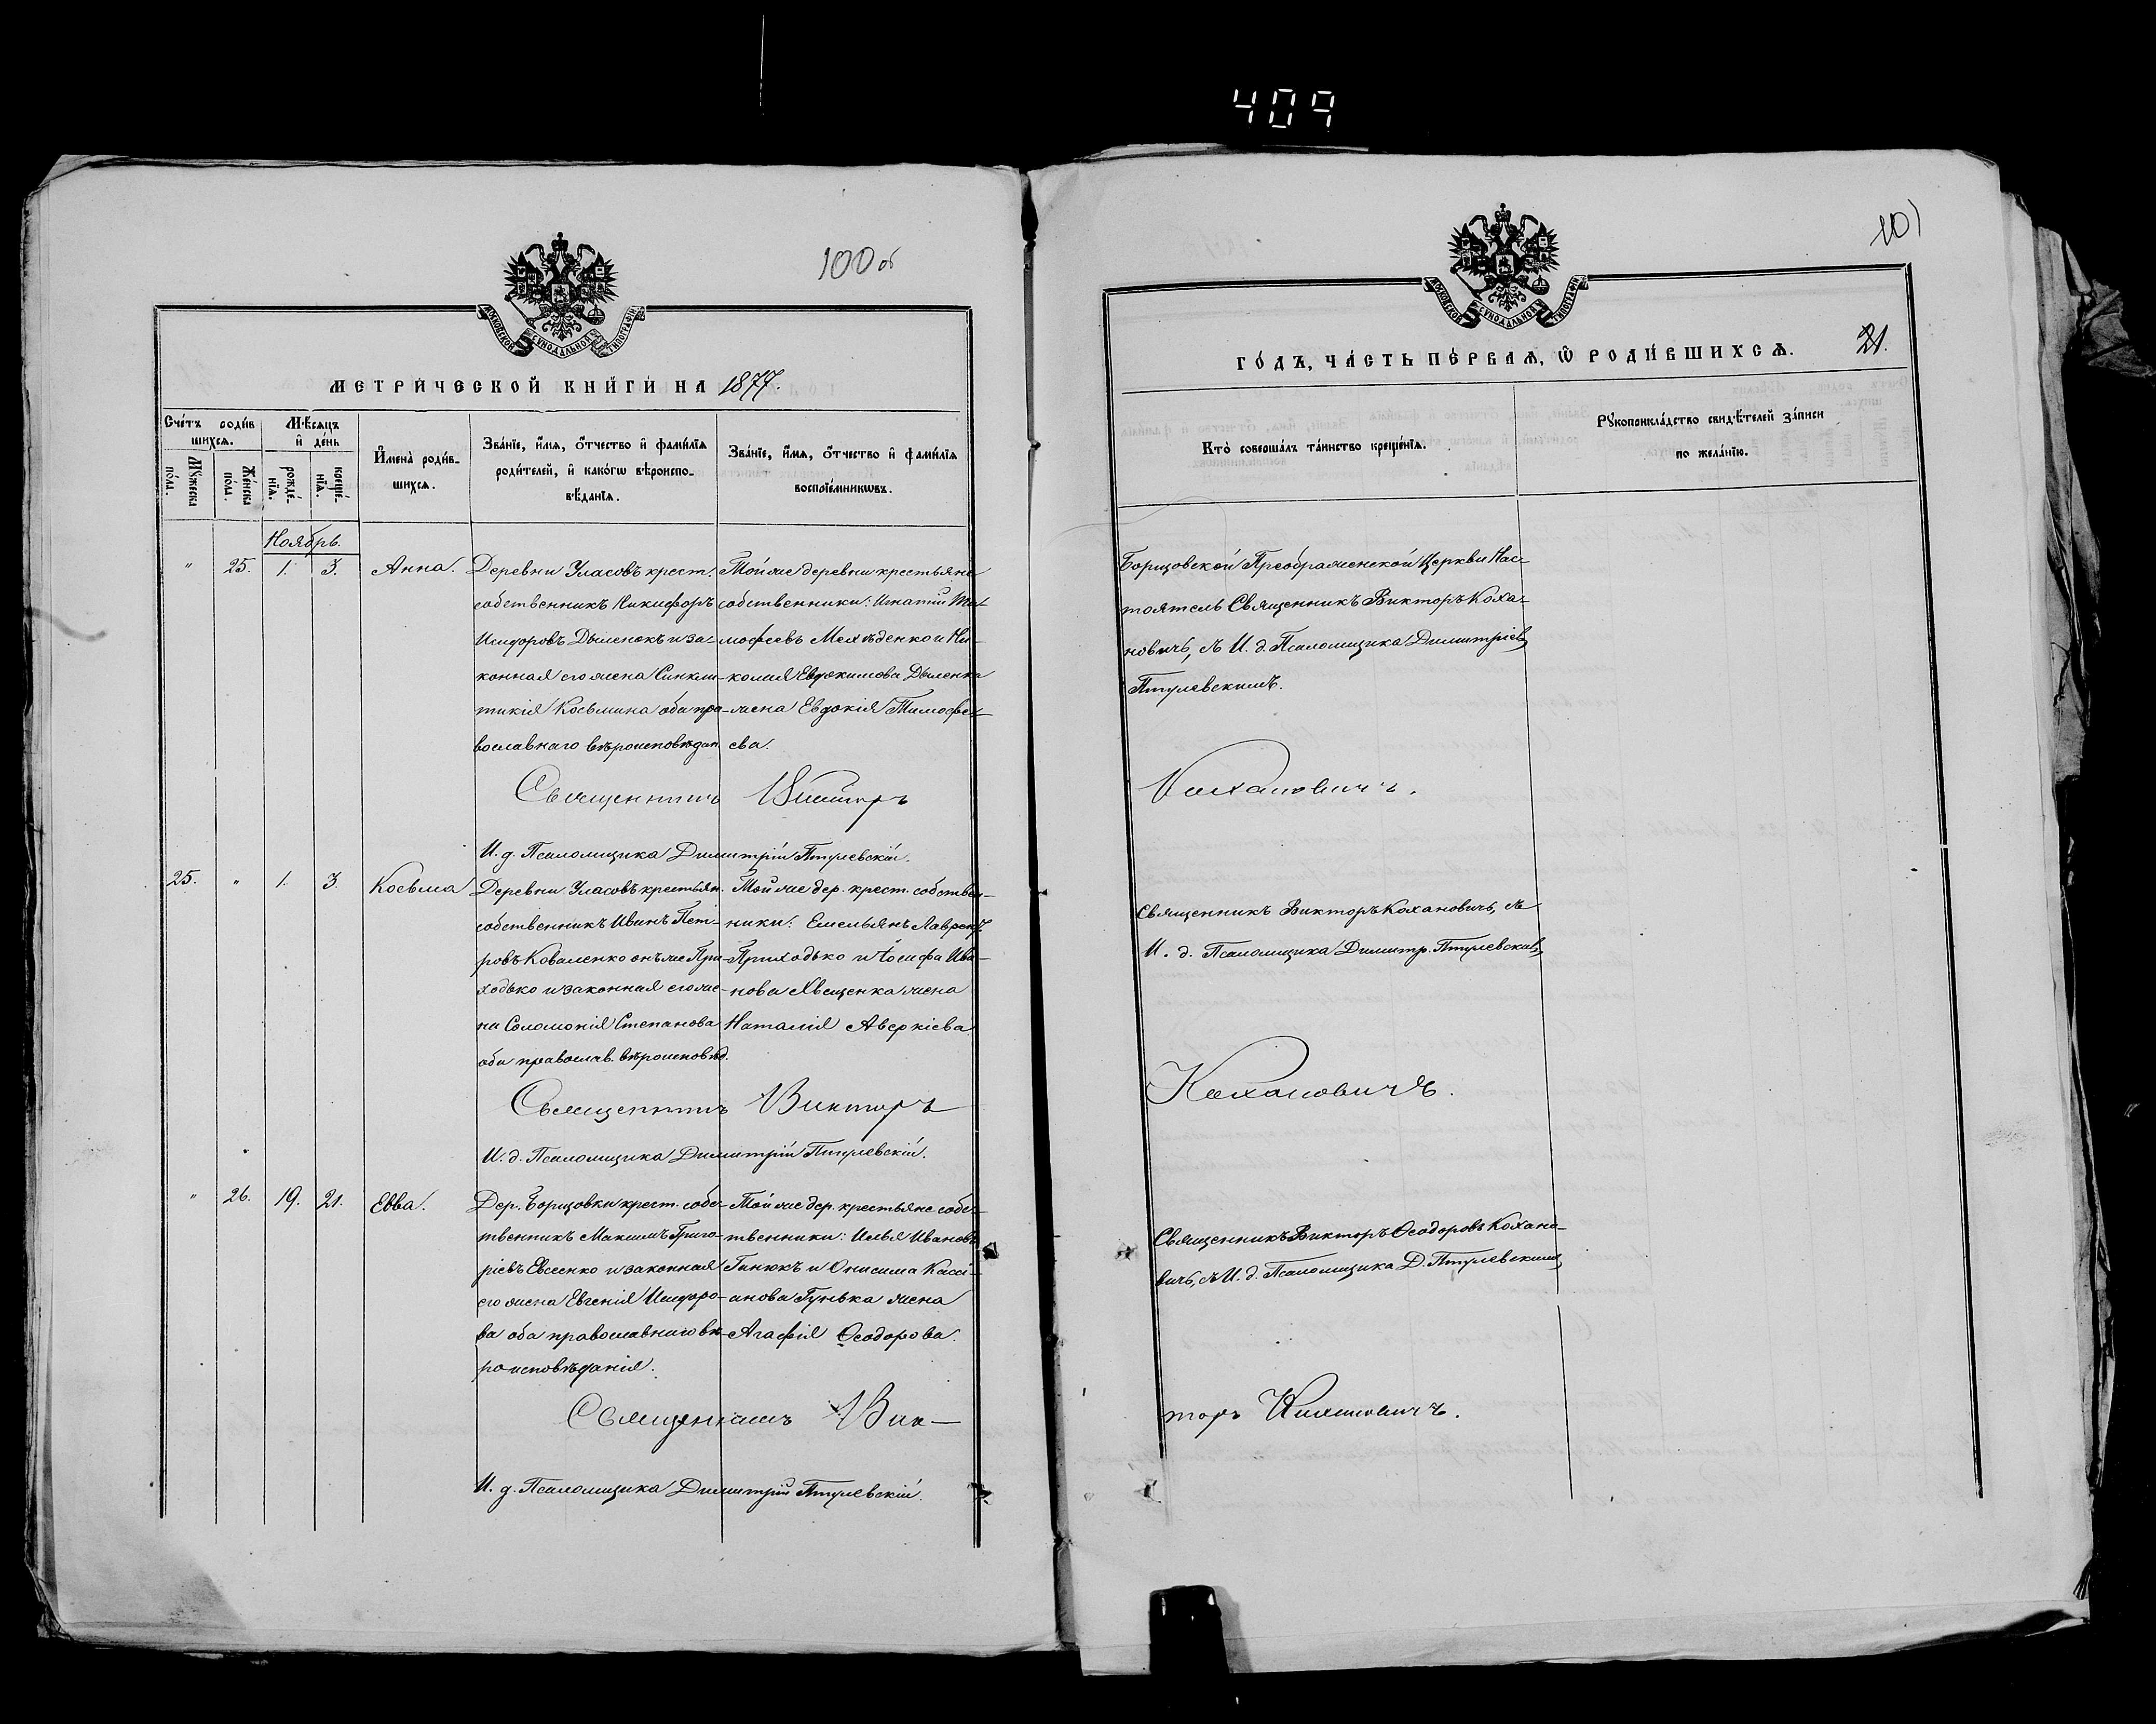 409
100 об
МОСКОВСКОЙ СУНОДАЛЬНОЙ ТИПОГРАФІИ
МЕТРИ́ЧЕСКОЙ КНИ́ГИ НА 1877.
Сче́тъ роди́вшихся.
Му́жеска по́ла.
Же́нска по́ла.
Мѣ́сяцъ и҆ де́нь
рожде́нїя.
креще́нїя.
И҆мена̀ роди́вшихся.
Зва́нїе, и҆́мя, ѻ҆́тчество и҆ фами́лїя
роди́телей, и҆ како́гѡ вѣроиспо-
вѣ́данїя.
Зва́нїе, и҆́мя, ѻ҆́тчество и҆ фами́лїя
воспрїе́мникѡвъ.
Ноябрь.
" 25. 1. 3. Анна.
Деревни Уласовъ крест.
собственникъ Никифоръ
Исидоровъ Дыленокъ и за-
конная его жена Синкли-
тикія Косьмина оба пра-
вославнаго вѣроисповѣдан.
Той же деревни крестьяне
собственники: Игнатій Ти-
мофеевъ Мехѣденко и Ни-
колая Евдокимова Дыленка
жена Евдокія Тимофе-
ева.
Священникъ Викторъ
И. д. Псаломщика Димитрій Птулевскій.
25. " 1. 3. Косьма
Деревни Уласовъ крестьян.
собственникъ Иванъ Пет-
ровъ Коваленко онъ же При-
ходько и законная его же-
на Соломонія Степанова
оба православ. вѣроисповѣд.
Той же дер. крест. собствен-
ники: Емельянъ Лаврент.
Приходько и Іосифа Ива-
нова Явщенка жена
Наталія Аверкіева
Священникъ Викторъ
И. д. Псаломщика Димитрій Птулевскій.
" 26. 19. 21. Евва.
Дер. Борщовки крест. собс-
твенникъ Максимъ Григо-
ріевъ Евсеенко и законная
его жена Евгенія Исидоро-
ва оба православнаго вѣ-
роисповѣданія.
Той же дер. крестьяне собс-
твенники: Илья Ивановъ
Ганюкъ и Онисима Кассі-
анова Гунька жена
Агафія Ѳеодорова.
Священникъ Вик-
И. д. Псаломщика Димитрій Птулевскій.
101
МОСКОВСКОЙ СУНОДАЛЬНОЙ ТИПОГРАФІИ
ГО́ДЪ, ЧА́СТЬ ПЕ́РВАЯ, Ѡ҆ РОДИ́ВШИХСЯ. 21.
Кто̀ соверша́лъ та́инство креще́нїя.
Рꙋкоприкла́дство свидѣ́телей за́писи
по жела́нїю.
Борщовской Преображенской Церкви Нас-
тоятель Священникъ Викторъ Коха-
новичъ, съ И. д. Псаломщика Димитріев.
Птулевскимъ.
Кохановичъ.
Священникъ Викторъ Кохановичъ, съ
И. д. Псаломщика Димитр. Птулевским
Кохановичъ.
Священникъ Викторъ Ѳеодоровъ Кохано-
вичъ, съ И. д. Псаломщика Д. Птулевским
торъ Кохановичъ.